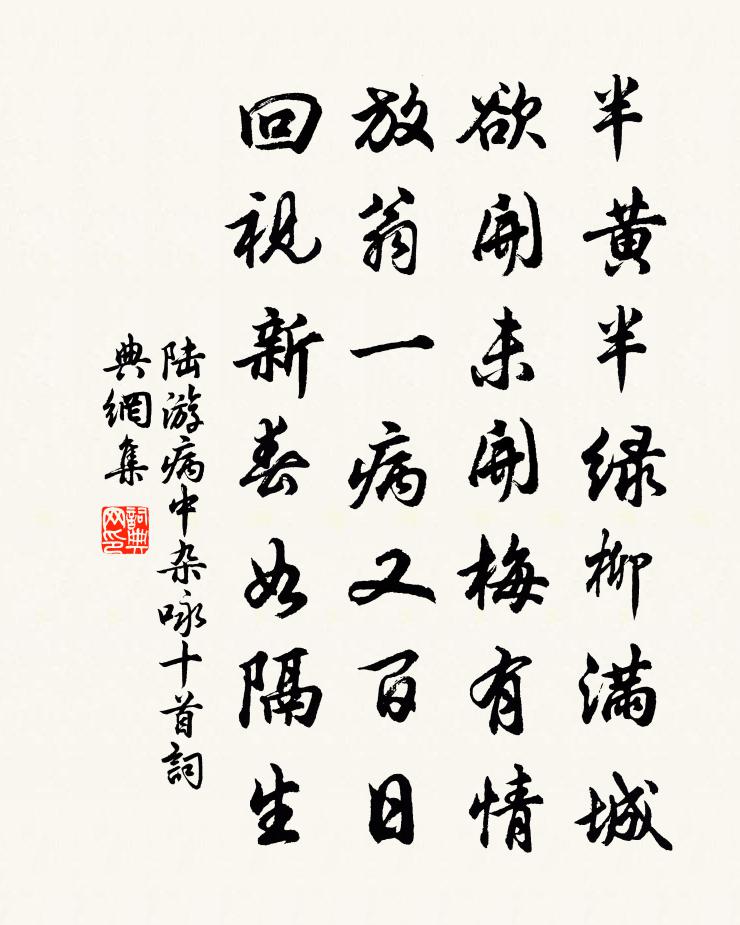 半黄半绿柳满城
欲開未開梅有情
放翁一病又百日
回視新春如隔生
陆游病中杂咏十首詞
典網集
詞典
网印